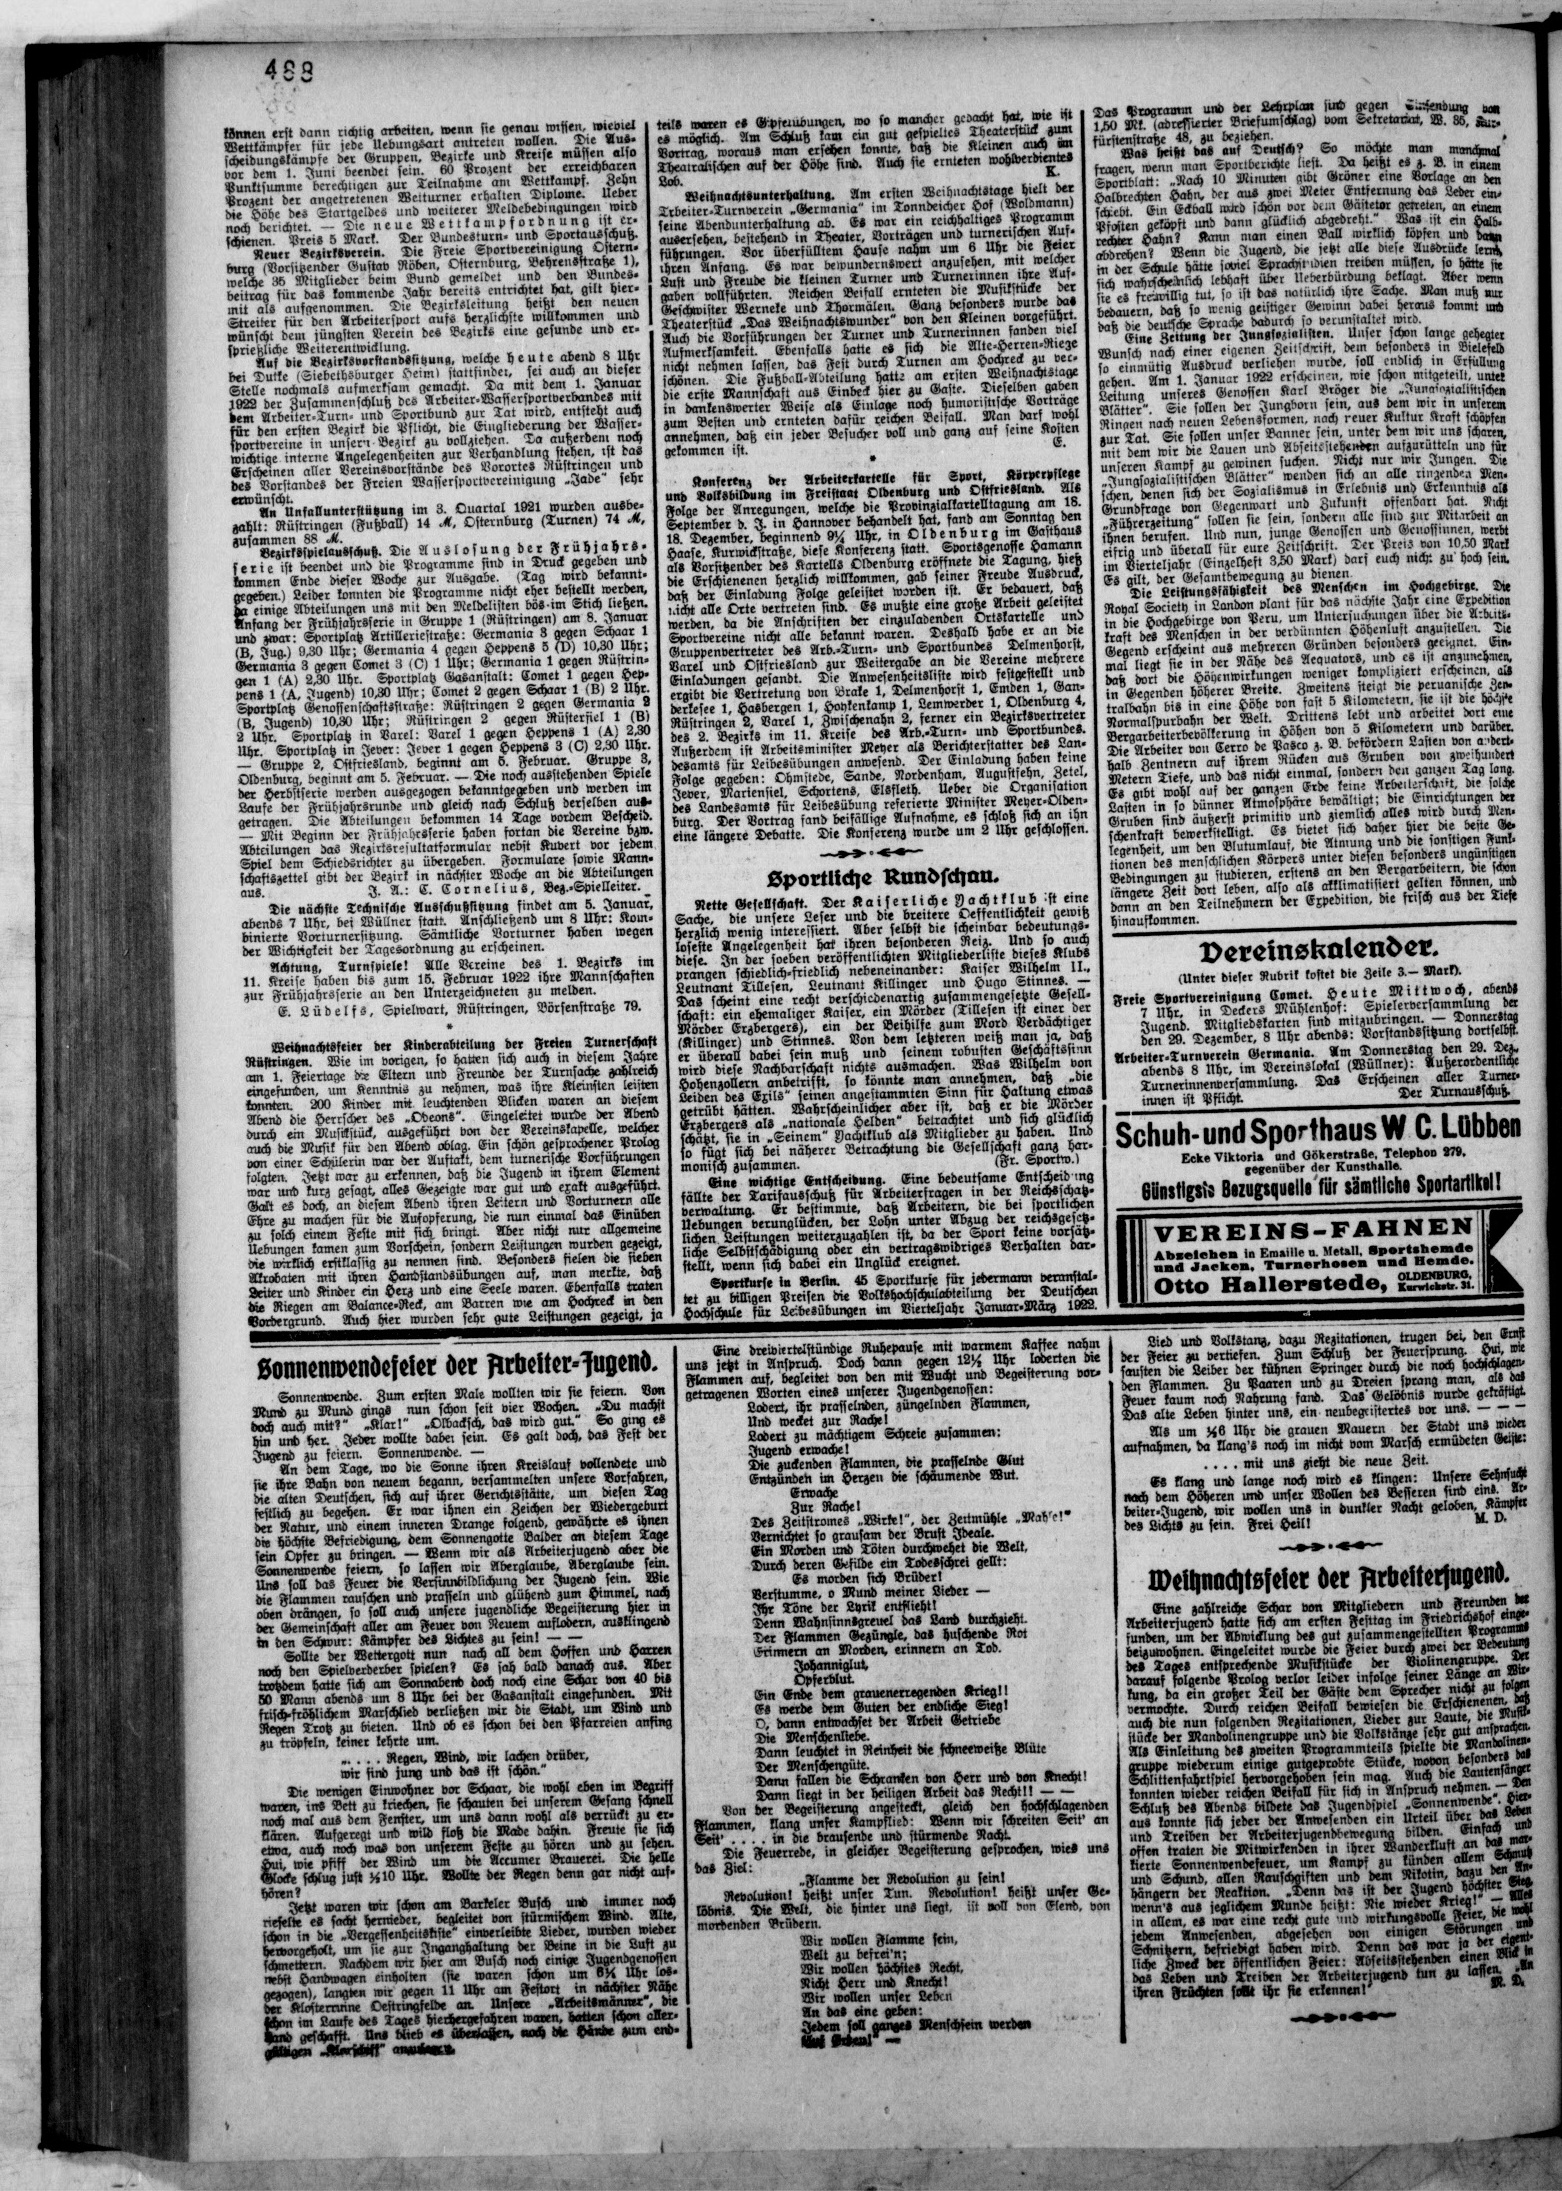 488
können erst dann richtig arbeiten, wenn sie genau wissen, wieviel
Wettkämpfer für jede Uebungsart antreten wollen. Die Aus-
scheidungskämpfe der Gruppen, Bezirke und Kreise müssen also
vor dem 1. Juni beendet sein. 60 Prozent der erreichbaren
Punktsumme berechtigen zur Teilnahme am Wettkampf. Zehn
Prozent der angetretenen Wetturner erhalten Diplome. Ueber
die Höhe des Startgeldes und weiterer Meldebedingungen wird
noch berichtet. — Die neue Wettkampfordnung ist er-
schienen. Preis 5 Mark. Der Bundesturn- und Sportausschuß.
Neuer Bezirksverein. Die Freie Sportvereinigung Ostern-
burg (Vorsitzender Gustav Röben, Osternburg, Behrensstraße 1),
welche 35 Mitglieder beim Bund gemeldet und den Bundes-
beitrag für das kommende Jahr bereits entrichtet hat, gilt hier-
mit als aufgenommen. Die Bezirksleitung heißt den neuen
Streiter für den Arbeitersport aufs herzlichste willkommen und
wünscht dem jüngsten Verein des Bezirks eine gesunde und er-
sprießliche Weiterentwicklung.
Auf die Bezirksvorstandssitzung, welche heute abend 8 Uhr
bei Dutke (Siebethsburger Heim) stattfindet, sei auch an dieser
Stelle nochmals aufmerksam gemacht. Da mit dem 1. Januar
1922 der Zusammenschluß des Arbeiter-Wassersportverbandes mit
dem Arbeiter-Turn- und Sportbund zur Tat wird, entsteht auch
für den ersten Bezirk die Pflicht, die Eingliederung der Wasser-
sportvereine in unsern Bezirk zu vollziehen. Da außerdem noch
wichtige interne Angelegenheiten zur Verhandlung stehen, ist das
Erscheinen aller Vereinsvorstände des Vorortes Rüstringen und
des Vorstandes der Freien Wassersportvereinigung „Jade“ sehr
erwünscht.
An Unfallunterstützung im 3. Quartal 1921 wurden ausbe-
zahlt: Rüstringen (Fußball) 14 M, Osternburg (Turnen) 74 M,
zusammen 88 M.
Bezirksspielausschuß. Die Auslosung der Frühjahrs-
serie ist beendet und die Programme sind in Druck gegeben und
kommen Ende dieser Woche zur Ausgabe. (Tag wird bekannt-
gegeben.) Leider konnten die Programme nicht eher bestellt werden,
da einige Abteilungen uns mit den Meldelisten bös im Stich ließen.
Anfang der Frühjahrsserie in Gruppe 1 (Rüstringen) am 8. Januar
und zwar: Sportplatz Artilleriestraße: Germania 3 gegen Schaar 1
(B, Jug.) 9,30 Uhr; Germania 4 gegen Heppens 5 (D) 10,30 Uhr;
Germania 3 gegen Comet 3 (C) 1 Uhr; Germania 1 gegen Rüstrin-
gen 1 (A) 2,30 Uhr. Sportplatz Gasanstalt: Comet 1 gegen Hep-
pens 1 (A, Jugend) 10,30 Uhr; Comet 2 gegen Schaar 1 (B) 2 Uhr.
Sportplatz Genossenschaftsstraße: Rüstringen 2 gegen Germania 2
(B, Jugend) 10,30 Uhr; Rüstringen 2 gegen Rüstersiel 1 (B)
2 Uhr. Sportplatz in Varel: Varel 1 gegen Heppens 1 (A) 2,30
Uhr. Sportplatz in Jever: Jever 1 gegen Heppens 3 (C) 2,30 Uhr.
— Gruppe 2, Ostfriesland, beginnt am 5. Februar. Gruppe 3,
Oldenburg, beginnt am 5. Februar. — Die noch ausstehenden Spiele
der Herbstserie werden ausgezogen bekanntgegeben und werden im
Laufe der Frühjahrsrunde und gleich nach Schluß derselben aus-
getragen. Die Abteilungen bekommen 14 Tage vordem Bescheid.
— Mit Beginn der Frühjahrsserie haben fortan die Vereine bzw.
Abteilungen das Bezirksresultatformular nebst Kuvert vor jedem
Spiel dem Schiedsrichter zu übergeben. Formulare sowie Mann-
schaftszettel gibt der Bezirk in nächster Woche an die Abteilungen
aus. J. A.: C. Cornelius, Bez.-Spielleiter.
Die nächste Technische Ausschußsitzung findet am 5. Januar,
abends 7 Uhr, bei Wüllner statt. Anschließend um 8 Uhr: Kom-
binierte Vorturnersitzung. Sämtliche Vorturner haben wegen
der Wichtigkeit der Tagesordnung zu erscheinen.
Achtung, Turnspiele! Alle Vereine des 1. Bezirks im
11. Kreise haben bis zum 15. Februar 1922 ihre Mannschaften
zur Frühjahrsserie an den Unterzeichneten zu melden.
E. Lüdelfs, Spielwart, Rüstringen, Börsenstraße 79.
*
Weihnachtsfeier der Kinderabteilung der Freien Turnerschaft
Rüstringen. Wie im vorigen, so hatten sich auch in diesem Jahre
am 1. Feiertage die Eltern und Freunde der Turnsache zahlreich
eingefunden, um Kenntnis zu nehmen, was ihre Kleinsten leisten
konnten. 200 Kinder mit leuchtenden Blicken waren an diesem
Abend die Herrscher des „Odeons“. Eingeleitet wurde der Abend
durch ein Musikstück, ausgeführt von der Vereinskapelle, welcher
auch die Musik für den Abend oblag. Ein schön gesprochener Prolog
von einer Schülerin war der Auftakt, dem turnerische Vorführungen
folgten. Jetzt war zu erkennen, daß die Jugend in ihrem Element
war und kurz gesagt, alles Gezeigte war gut und exakt ausgeführt.
Galt es doch, an diesem Abend ihren Leitern und Vorturnern alle
Ehre zu machen für die Aufopferung, die nun einmal das Einüben
zu solch einem Feste mit sich bringt. Aber nicht nur allgemeine
Uebungen kamen zum Vorschein, sondern Leistungen wurden gezeigt,
die wirklich erstklassig zu nennen sind. Besonders fielen die sieben
Akrobaten mit ihren Handstandsübungen auf, man merkte, daß
Leiter und Kinder ein Herz und eine Seele waren. Ebenfalls traten
die Riegen am Balance-Reck, am Barren wie am Hochreck in den
Vordergrund. Auch hier wurden sehr gute Leistungen gezeigt, ja
teils waren es Gipfelübungen, wo so mancher gedacht hat, wie ist
es möglich. Am Schluß kam ein gut gespieltes Theaterstück zum
Vortrag, woraus man ersehen konnte, daß die Kleinen auch im
Theatralischen auf der Höhe sind. Auch sie ernteten wohlverdientes
Lob. K.
Weihnachtsunterhaltung. Am ersten Weihnachtstage hielt der
Arbeiter-Turnverein „Germania“ im Tonndeicher Hof (Woldmann)
seine Abendunterhaltung ab. Es war ein reichhaltiges Programm
ausersehen, bestehend in Theater, Vorträgen und turnerischen Auf-
führungen. Vor überfülltem Hause nahm um 6 Uhr die Feier
ihren Anfang. Es war bewundernswert anzusehen, mit welcher
Lust und Freude die kleinen Turner und Turnerinnen ihre Auf-
gaben vollführten. Reichen Beifall ernteten die Musikstücke der
Geschwister Werneke und Thormälen. Ganz besonders wurde das
Theaterstück „Das Weihnachtswunder“ von den Kleinen vorgeführt.
Auch die Vorführungen der Turner und Turnerinnen fanden viel
Aufmerksamkeit. Ebenfalls hatte es sich die Alte-Herren-Riege
nicht nehmen lassen, das Fest durch Turnen am Hochreck zu ver-
schönen. Die Fußball-Abteilung hatte am ersten Weihnachtstage
die erste Mannschaft aus Einbeck hier zu Gaste. Dieselben gaben
in dankenswerter Weise als Einlage noch humoristische Vorträge
zum Besten und ernteten dafür reichen Beifall. Man darf wohl
annehmen, daß ein jeder Besucher voll und ganz auf seine Kosten
gekommen ist. E.
*
Konferenz der Arbeiterkartelle für Sport, Körperpflege
und Volksbildung im Freistaat Oldenburg und Ostfriesland. Als
Folge der Anregungen, welche die Provinzialkartelltagung am 18.
September d. J. in Hannover behandelt hat, fand am Sonntag den
18. Dezember, beginnend 9½ Uhr, in Oldenburg im Gasthaus
Haase, Kurwickstraße, diese Konferenz statt. Sportsgenosse Hamann
als Vorsitzender des Kartells Oldenburg eröffnete die Tagung, hieß
die Erschienenen herzlich willkommen, gab seiner Freude Ausdruck,
daß der Einladung Folge geleistet worden ist. Er bedauert, daß
nicht alle Orte vertreten sind. Es mußte eine große Arbeit geleistet
werden, da die Anschriften der einzuladenden Ortskartelle und
Sportvereine nicht alle bekannt waren. Deshalb habe er an die
Gruppenvertreter des Arb.-Turn- und Sportbundes Delmenhorst,
Varel und Ostfriesland zur Weitergabe an die Vereine mehrere
Einladungen gesandt. Die Anwesenheitsliste wird festgestellt und
ergibt die Vertretung von Brake 1, Delmenhorst 1, Emden 1, Gan-
derkesee 1, Hasbergen 1, Hoykenkamp 1, Lemwerder 1, Oldenburg 4,
Rüstringen 2, Varel 1, Zwischenahn 2, ferner ein Bezirksvertreter
des 2. Bezirks im 11. Kreise des Arb.-Turn- und Sportbundes.
Außerdem ist Arbeitsminister Meyer als Berichterstatter des Lan-
desamts für Leibesübungen anwesend. Der Einladung haben keine
Folge gegeben: Ohmstede, Sande, Nordenham, Augustfehn, Zetel,
Jever, Mariensiel, Schortens, Elsfleth. Ueber die Organisation
des Landesamts für Leibesübung referierte Minister Meyer-Olden-
burg. Der Vortrag fand beifällige Aufnahme, es schloß sich an ihn
eine längere Debatte. Die Konferenz wurde um 2 Uhr geschlossen.
Sportliche Rundschau.
Nette Gesellschaft. Der Kaiserliche Yachtklub ist eine
Sache, die unsere Leser und die breitere Oeffentlichkeit gewiß
herzlich wenig interessiert. Aber selbst die scheinbar bedeutungs-
loseste Angelegenheit hat ihren besonderen Reiz. Und so auch
diese. In der soeben veröffentlichten Mitgliederliste dieses Klubs
prangen schiedlich-friedlich nebeneinander: Kaiser Wilhelm II.,
Leutnant Tillesen, Leutnant Killinger und Hugo Stinnes. —
Das scheint eine recht verschiedenartig zusammengesetzte Gesell-
schaft: ein ehemaliger Kaiser, ein Mörder (Tillesen ist einer der
Mörder Erzbergers), ein der Beihilfe zum Mord Verdächtiger
(Killinger) und Stinnes. Von dem letzteren weiß man ja, daß
er überall dabei sein muß und seinem robusten Geschäftssinn
wird diese Nachbarschaft nichts ausmachen. Was Wilhelm von
Hohenzollern anbetrifft, so könnte man annehmen, daß „die
Leiden des Exils“ seinen angestammten Sinn für Haltung etwas
getrübt hätten. Wahrscheinlicher aber ist, daß er die Mörder
Erzbergers als „nationale Helden“ betrachtet und sich glücklich
schätzt, sie in „Seinem“ Yachtklub als Mitglieder zu haben. Und
so fügt sich bei näherer Betrachtung die Gesellschaft ganz har-
monisch zusammen. (Fr. Sportw.)
Eine wichtige Entscheidung. Eine bedeutsame Entscheidung
fällte der Tarifausschuß für Arbeiterfragen in der Reichsschatz-
verwaltung. Er bestimmte, daß Arbeitern, die bei sportlichen
Uebungen verunglücken, der Lohn unter Abzug der reichsgesetz-
lichen Leistungen weiterzuzahlen ist, da der Sport keine vorsätz-
liche Selbstschädigung oder ein vertragswidriges Verhalten dar-
stellt, wenn sich dabei ein Unglück ereignet.
Sportkurse in Berlin. 45 Sportkurse für jedermann veranstal-
tet zu billigen Preisen die Volkshochschulabteilung der Deutschen
Hochschule für Leibesübungen im Vierteljahr Januar-März 1922.
Das Programm und der Lehrplan sind gegen Einsendung von
1,50 Mk. (adressierter Briefumschlag) vom Sekretariat, W. 35, Kur-
fürstenstraße 48, zu beziehen.
Was heißt das auf Deutsch? So möchte man manchmal
fragen, wenn man Sportberichte liest. Da heißt es z. B. in einem
Sportblatt: „Nach 10 Minuten gibt Gröner eine Vorlage an den
Halbrechten Hahn, der aus zwei Meter Entfernung das Leder ein-
schiebt. Ein Eckball wird schön vor dem Gästetor getreten, an einem
Pfosten geköpft und dann glücklich abgedreht.“ Was ist ein Halb-
rechter Hahn? Kann man einen Ball wirklich köpfen und dann
abdrehen? Wenn die Jugend, die jetzt alle diese Ausdrücke lernt,
in der Schule hätte soviel Sprachstudien treiben müssen, so hätte sie
sich wahrscheinlich lebhaft über Ueberbürdung beklagt. Aber wenn
sie es freiwillig tut, so ist das natürlich ihre Sache. Man muß nur
bedauern, daß so wenig geistiger Gewinn dabei heraus kommt und
daß die deutsche Sprache dadurch so verunstaltet wird.
Eine Zeitung der Jungsozialisten. Unser schon lange gehegter
Wunsch nach einer eigenen Zeitschrift, dem besonders in Bielefeld
so einmütig Ausdruck verliehen wurde, soll endlich in Erfüllung
gehen. Am 1. Januar 1922 erscheinen, wie schon mitgeteilt, unter
Leitung unseres Genossen Karl Bröger die „Jungsozialistischen
Blätter“. Sie sollen der Jungborn sein, aus dem wir in unserem
Ringen nach neuen Lebensformen, nach neuer Kultur Kraft schöpfen
zur Tat. Sie sollen unser Banner sein, unter dem wir uns scharen,
mit dem wir die Lauen und Abseitsstehenden aufzurütteln und für
unseren Kampf zu gewinen suchen. Nicht nur wir Jungen. Die
„Jungsozialistischen Blätter“ wenden sich an alle ringenden Men-
schen, denen sich der Sozialismus in Erlebnis und Erkenntnis als
Grundfrage von Gegenwart und Zukunft offenbart hat. Nicht
„Führerzeitung“ sollen sie sein, sondern alle sind zur Mitarbeit an
ihnen berufen. Und nun, junge Genossen und Genossinnen, werbt
eifrig und überall für eure Zeitschrift. Der Preis von 10,50 Mark
im Vierteljahr (Einzelheft 3,50 Mark) darf euch nicht zu hoch sein.
Es gilt, der Gesamtbewegung zu dienen.
Die Leistungsfähigkeit des Menschen im Hochgebirge. Die
Royal Society in London plant für das nächste Jahr eine Expedition
in die Hochgebirge von Peru, um Untersuchungen über die Arbeits-
kraft des Menschen in der verdünnten Höhenluft anzustellen. Die
Gegend erscheint aus mehreren Gründen besonders geeignet. Ein-
mal liegt sie in der Nähe des Aequators, und es ist anzunehmen,
daß dort die Höhenwirkungen weniger kompliziert erscheinen, als
in Gegenden höherer Breite. Zweitens steigt die peruanische Zen-
tralbahn bis in eine Höhe von fast 5 Kilometern, sie ist die höchste
Normalspurbahn der Welt. Drittens lebt und arbeitet dort eine
Bergarbeiterbevölkerung in Höhen von 5 Kilometern und darüber.
Die Arbeiter von Cerro de Pasco z. B. befördern Lasten von andert-
halb Zentnern auf ihrem Rücken aus Gruben von zweihundert
Metern Tiefe, und das nicht einmal, sondern den ganzen Tag lang.
Es gibt wohl auf der ganzen Erde keine Arbeiterschaft, die solche
Lasten in so dünner Atmosphäre bewältigt; die Einrichtungen der
Gruben sind äußerst primitiv und ziemlich alles wird durch Men-
schenkraft bewerkstelligt. Es bietet sich daher hier die beste Ge-
legenheit, um den Blutumlauf, die Atmung und die sonstigen Funk-
tionen des menschlichen Körpers unter diesen besonders ungünstigen
Bedingungen zu studieren, erstens an den Bergarbeitern, die schon
längere Zeit dort leben, also als akklimatisiert gelten können, und
dann an den Teilnehmern der Expedition, die frisch aus der Tiefe
hinaufkommen.
Vereinskalender.
(Unter dieser Rubrik kostet die Zeile 3.— Mark).
Freie Sportvereinigung Comet. Heute Mittwoch, abends
7 Uhr, in Deckers Mühlenhof: Spielerversammlung der
Jugend. Mitgliedskarten sind mitzubringen. — Donnerstag
den 29. Dezember, 8 Uhr abends: Vorstandssitzung dortselbst.
Arbeiter-Turnverein Germania. Am Donnerstag den 29. Dez.,
abends 8 Uhr, im Vereinslokal (Wüllner): Außerordentliche
Turnerinnenversammlung. Das Erscheinen aller Turner-
innen ist Pflicht. Der Turnausschuß.
Schuh- und Sporthaus W. C. Lübben
Ecke Viktoria und Gökerstraße, Telephon 279,
gegenüber der Kunsthalle.
Günstigste Bezugsquelle für sämtliche Sportartikel!
VEREINS-FAHNEN
Abzeichen in Emaille u. Metall, Sportshemde
und Jacken, Turnerhosen und Hemde.
Otto Hallerstede, OLDENBURG, Kurwickstr. 31.
Sonnenwendefeier der Arbeiter-Jugend.
Sonnenwende. Zum ersten Male wollten wir sie feiern. Von
Mund zu Mund gings nun schon seit vier Wochen. „Du machst
doch auch mit?“ „Klar!“ „Olbacksch, das wird gut.“ So ging es
hin und her. Jeder wollte dabei sein. Es galt doch, das Fest der
Jugend zu feiern. Sonnenwende. —
An dem Tage, wo die Sonne ihren Kreislauf vollendete und
sie ihre Bahn von neuem begann, versammelten unsere Vorfahren,
die alten Deutschen, sich auf ihrer Gerichtsstätte, um diesen Tag
festlich zu begehen. Er war ihnen ein Zeichen der Wiedergeburt
der Natur, und einem inneren Drange folgend, gewährte es ihnen
die höchste Befriedigung, dem Sonnengotte Balder an diesem Tage
sein Opfer zu bringen. — Wenn wir als Arbeiterjugend aber die
Sonnenwende feiern, so lassen wir Aberglaube, Aberglaube sein.
Uns soll das Feuer die Versinnbildlichung der Jugend sein. Wie
die Flammen rauschen und prasseln und glühend zum Himmel, nach
oben drängen, so soll auch unsere jugendliche Begeisterung hier in
der Gemeinschaft aller am Feuer von Neuem auflodern, ausklingend
in den Schwur: Kämpfer des Lichtes zu sein! — —
Sollte der Wettergott nun nach all dem Hoffen und Harren
noch den Spielverderber spielen? Es sah bald danach aus. Aber
trotzdem hatte sich am Sonnabend doch noch eine Schar von 40 bis
50 Mann abends um 8 Uhr bei der Gasanstalt eingefunden. Mit
frisch-fröhlichem Marschlied verließen wir die Stadt, um Wind und
Regen Trotz zu bieten. Und ob es schon bei den Pfarreien anfing
zu tröpfeln, keiner kehrte um.
„. . . . Regen, Wind, wir lachen drüber,
wir sind jung und das ist schön.“
Die wenigen Einwohner vor Schaar, die wohl eben im Begriff
waren, ins Bett zu kriechen, sie schauten bei unserem Gesang schnell
noch mal aus dem Fenster, um uns dann wohl als verrückt zu er-
klären. Aufgeregt und wild floß die Made dahin. Freute sie sich
etwa, auch noch was von unserem Feste zu hören und zu sehen.
Hui, wie pfiff der Wind um die Accumer Brauerei. Die helle
Glocke schlug just ½10 Uhr. Wollte der Regen denn gar nicht auf-
hören?
Jetzt waren wir schon am Barkeler Busch und immer noch
rieselte es sacht hernieder, begleitet von stürmischem Wind. Alte,
schon in die „Vergessenheitskiste“ einverleibte Lieder, wurden wieder
hervorgeholt, um sie zur Inganghaltung der Beine in die Luft zu
schmettern. Nachdem wir hier am Busch noch einige Jugendgenossen
nebst Handwagen einholten (sie waren schon um 6½ Uhr los-
gezogen), langten wir gegen 11 Uhr am Festort in nächster Nähe
der Klosterruine Oestringfelde an. Unsere „Arbeitsmänner“, die
schon im Laufe des Tages hierhergefahren waren, hatten schon aller-
hand geschafft. Uns blieb es überlassen, noch die Hände zum end-
gültigen „Klarschiff“
Eine dreiviertelstündige Ruhepause mit warmem Kaffee nahm
uns jetzt in Anspruch. Doch dann gegen 12½ Uhr loderten die
Flammen auf, begleitet von den mit Wucht und Begeisterung vor-
getragenen Worten eines unserer Jugendgenossen:
Lodert, ihr prasselnden, züngelnden Flammen,
Und wecket zur Rache!
Lodert zu mächtigem Schreie zusammen:
Jugend erwache!
Die zuckenden Flammen, die prasselnde Glut
Entzünden im Herzen die schäumende Wut.
Erwache
Zur Rache!
Des Zeitstromes „Wirke!“, der Zeitmühle „Mahle!“
Vernichtet so grausam der Brust Ideale.
Ein Morden und Töten durchwehet die Welt,
Durch deren Gefilde ein Todesschrei gellt:
Es morden sich Brüder!
Verstumme, o Mund meiner Lieder —
Ihr Töne der Lyrik entflieht!
Denn Wahnsinnsgreuel das Land durchzieht.
Der Flammen Gezüngle, das huschende Rot
Erinnern an Morden, erinnern an Tod.
Johanniglut,
Opferblut.
Ein Ende dem grauenerregenden Krieg!!
Es werde dem Guten der endliche Sieg!
O, dann entwachset der Arbeit Getriebe
Die Menschenliebe.
Dann leuchtet in Reinheit die schneeweiße Blüte
Der Menschengüte.
Dann fallen die Schranken von Herr und von Knecht!
Dann liegt in der heiligen Arbeit das Recht!! — —
Von der Begeisterung angesteckt, gleich den hochschlagenden
Flammen, klang unser Kampflied: Wenn wir schreiten Seit' an
Seit' . . . . in die brausende und stürmende Nacht.
Die Feuerrede, in gleicher Begeisterung gesprochen, wies uns
das Ziel:
„Flamme der Revolution zu sein!
Revolution! heißt unser Tun. Revolution! heißt unser Ge-
löbnis. Die Welt, die hinter uns liegt, ist voll von Elend, von
mordenden Brüdern.
Wir wollen Flamme sein,
Welt zu befrei'n;
Wir wollen höchstes Recht,
Nicht Herr und Knecht!
Wir wollen unser Leben
An das eine geben:
Jedem soll ganzes Menschsein werden
Auf Erden!“ —
Lied und Volkstanz, dazu Rezitationen, trugen bei, den Ernst
der Feier zu vertiefen. Zum Schluß der Feuersprung. Hui, wie
sausten die Leiber der kühnen Springer durch die noch hochschlagen-
den Flammen. Zu Paaren und zu Dreien sprang man, als das
Feuer kaum noch Nahrung fand. Das Gelöbnis wurde gekräftigt.
Das alte Leben hinter uns, ein neubegeistertes vor uns. — — —
Als um ½6 Uhr die grauen Mauern der Stadt uns wieder
aufnahmen, da klang's noch im nicht vom Marsch ermüdeten Geiste:
. . . . mit uns zieht die neue Zeit.
Es klang und lange noch wird es klingen: Unsere Sehnsucht
nach dem Höheren und unser Wollen des Besseren sind eins. Ar-
beiter-Jugend, wir wollen uns in dunkler Nacht geloben, Kämpfer
des Lichts zu sein. Frei Heil! M. D.
Weihnachtsfeier der Arbeiterjugend.
Eine zahlreiche Schar von Mitgliedern und Freunden der
Arbeiterjugend hatte sich am ersten Festtag im Friedrichshof einge-
funden, um der Abwicklung des gut zusammengestellten Programms
beizuwohnen. Eingeleitet wurde die Feier durch zwei der Bedeutung
des Tages entsprechende Musikstücke der Violinengruppe. Der
darauf folgende Prolog verlor leider infolge seiner Länge an Wir-
kung, da ein großer Teil der Gäste dem Sprecher nicht zu folgen
vermochte. Durch reichen Beifall bewiesen die Erschienenen, daß
auch die nun folgenden Rezitationen, Lieder zur Laute, die Musik-
stücke der Mandolinengruppe und die Volkstänze sehr gut ansprachen.
Als Einleitung des zweiten Programmteils spielte die Mandolinen-
gruppe wiederum einige gutgeprobte Stücke, wovon besonders das
Schlittenfahrtspiel hervorgehoben sein mag. Auch die Lautensänger
konnten wieder reichen Beifall für sich in Anspruch nehmen. — Den
Schluß des Abends bildete das Jugendspiel „Sonnenwende“. Hier-
aus konnte sich jeder der Anwesenden ein Urteil über das Leben
und Treiben der Arbeiterjugendbewegung bilden. Einfach und
offen traten die Mitwirkenden in ihrer Wanderkluft an das mar-
kierte Sonnenwendefeuer, um Kampf zu künden allem Schmutz
und Schund, allen Rauschgiften und dem Nikotin, dazu den An-
hängern der Reaktion. „Denn das ist der Jugend höchster Sieg,
wenn's aus jeglichem Munde heißt: Nie wieder Krieg!“ — Alles
in allem, es war eine recht gute und wirkungsvolle Feier, die wohl
jedem Anwesenden, abgesehen von einigen Störungen und
Schnitzern, befriedigt haben wird. Denn das war ja der eigent-
liche Zweck der öffentlichen Feier: Abseitsstehenden einen Blick in
das Leben und Treiben der Arbeiterjugend tun zu lassen. „An
ihren Früchten sollt ihr sie erkennen!“ M. D.